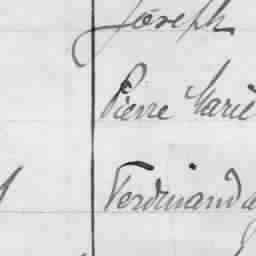 Joseph
Pierre Marie
Ferdinand